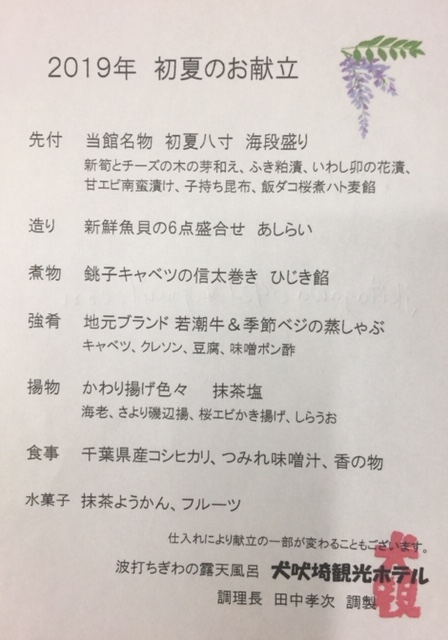 2019年 初夏のお献立
先付 当館名物 初夏八寸 海段盛り
新筍とチーズの木の芽和え、ふき粕漬、いわし卯の花漬、
甘エビ南蛮漬け、子持ち昆布、飯ダコ桜煮ハト麦餡
造り 新鮮魚貝の6点盛合せ あしらい
煮物 銚子キャベツの信太巻き ひじき餡
強肴 地元ブランド 若潮牛&季節ベジの蒸しゃぶ
キャベツ、クレソン、豆腐、味噌ポン酢
揚物 かわり揚げ色々 抹茶塩
海老、さより磯辺揚、桜エビかき揚げ、しらうお
食事 千葉県産コシヒカリ、つみれ味噌汁、香の物
水菓子 抹茶ようかん、フルーツ
仕入れにより献立の一部が変わることもございます。
波打ちぎわの露天風呂 犬吠埼観光ホテル
調理長 田中孝次 調製